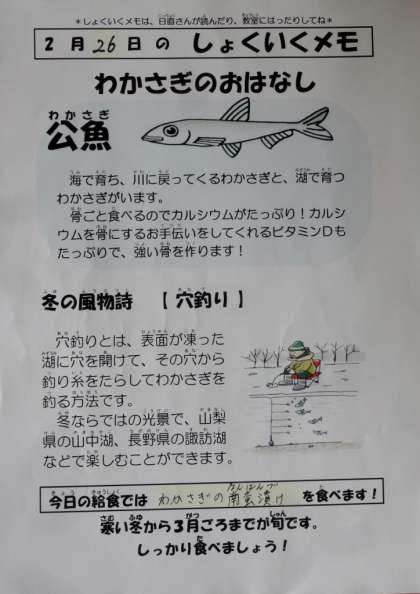 ＊しょくいくメモは、日直さんが読んだり、教室にはったりしてね＊
2月26日の しょくいくメモ
わかさぎのおはなし
わかさぎ
公魚
海で育ち、川に戻ってくるわかさぎと、湖で育つ
わかさぎがいます。
骨ごと食べるのでカルシウムがたっぷり！カルシ
ウムを骨にするお手伝いをしてくれるビタミンDも
たっぷりで、強い骨を作ります！
冬の風物詩 【 穴釣り 】
穴釣りとは、表面が凍った
湖に穴を開けて、その穴から
釣り糸をたらしてわかさぎを
釣る方法です。
冬ならではの光景で、山梨
県の山中湖、長野県の諏訪湖
などで楽しむことができます。
今日の給食では わかさぎの南蛮漬け を食べます！
寒い冬から3月ごろまでが旬です。
しっかり食べましょう！